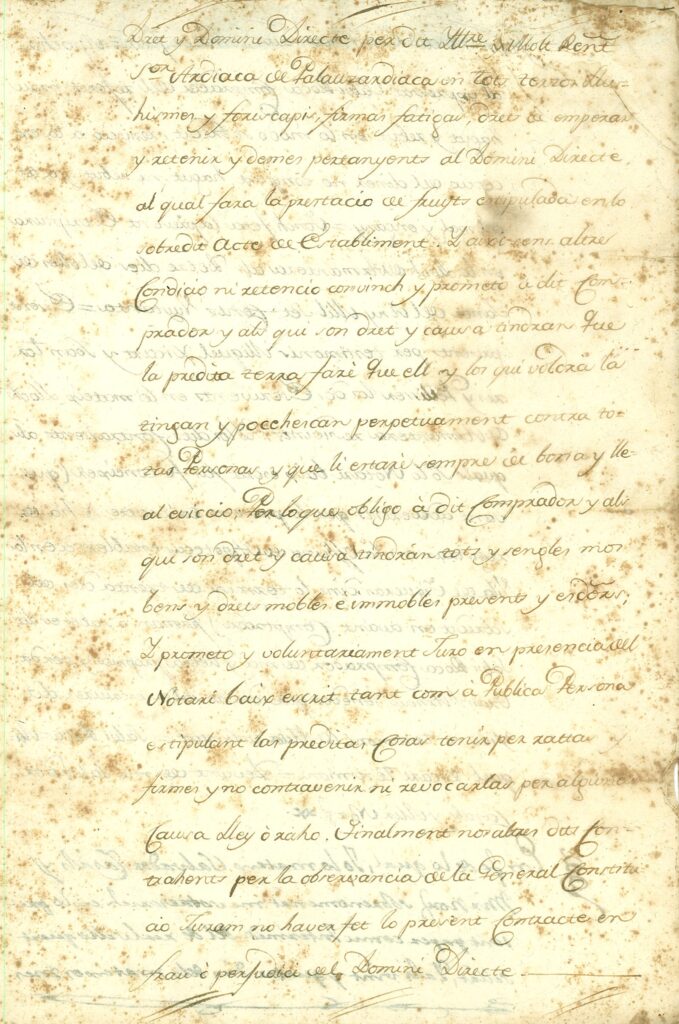 Dret y Domini Directe per dit Illtre y Molt Rent
Sor Ardiaca de Palauzardiaca en tots tersos lluis-
hismes y foriscapis, firmas fatigas, drets de emperar
y retenir y demes pertanyents al Domini Directe
al qual fara la prestacio de fruyts estipulada en lo
sobredit Acte de Establiment. Y axi sens altre
Condicio ni retencio convinch y prometo à dit Com-
prador y als qui son dret y causa tindran que
la predita terra faré que ell y los qui voldrá la
tingan y poccehescan perpetuament contra to-
tas Personas, y que li estaré sempre de bona y lle-
al eviccio; Per lo que obligo à dit Comprador y als
qui son dret y causa tindrán tots y sengles mos
bens y drets mobles e immobles presents y esdors;
Y prometo y voluntariament Juro en presencia del
Notari baix escrit tant com à Publica Persona
estipulant las preditas Cosas tenir per rattas
firmes y no contravenir ni revocarlas per alguna
Causa Lley ò rahó. Finalment nosaltres dits Con-
trahents per la observancia de la General Constitu
cio Juram no haver fet lo present Contracte en
frau ò perjudici del Domini Directe